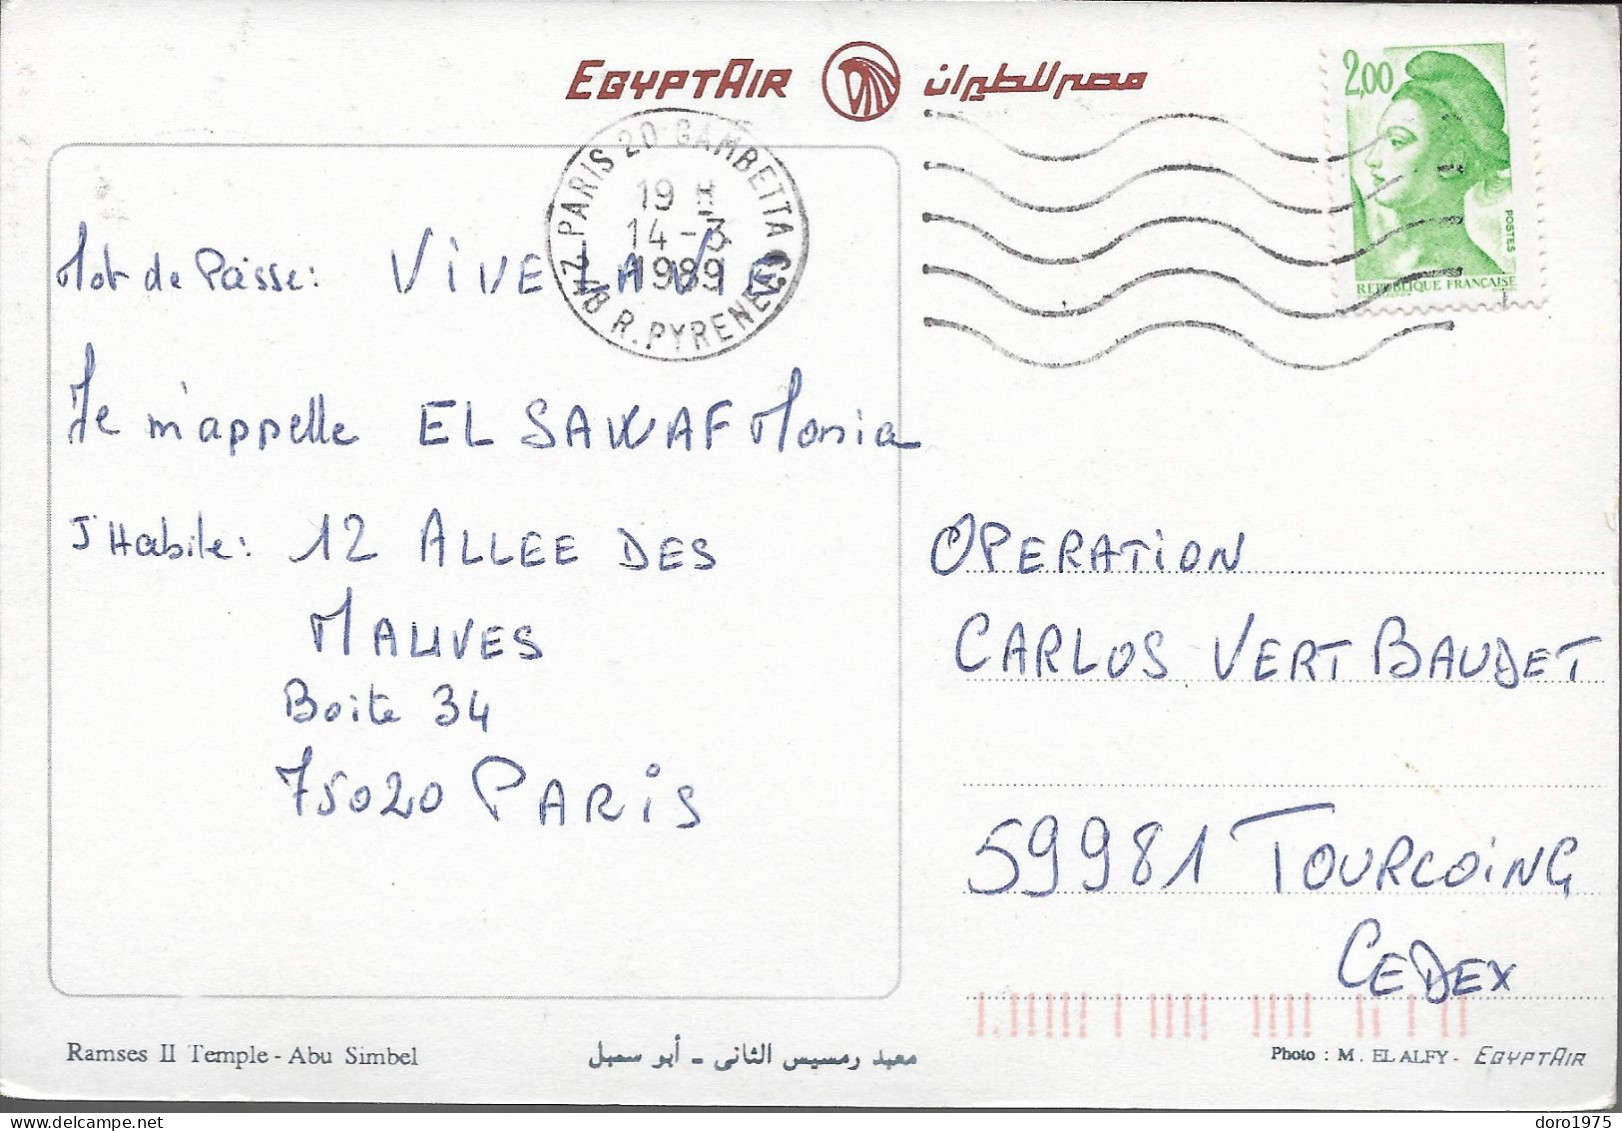 EGYPTAIR مصر للطيران
2,00
POSTES
REPUBLIQUE FRANÇAISE
PARIS 20 GAMBETTA
19 H
14-3
1989
248 R. PYRENEES
Mot de Passe: ViVE LA ViE
Je m'appelle EL SAWAF Monia
J'Habite: 12 ALLEE DES
MAUVES
Boite 34
75020 PARiS
OPERATiON
CARLOS VERT BAUDET
59981 TOURCOiNG
CEDEX
Ramses II Temple - Abu Simbel
معبد رمسيس الثانى - أبو سمبل
Photo : M. EL ALFY - EGYPTAIR
doro1975